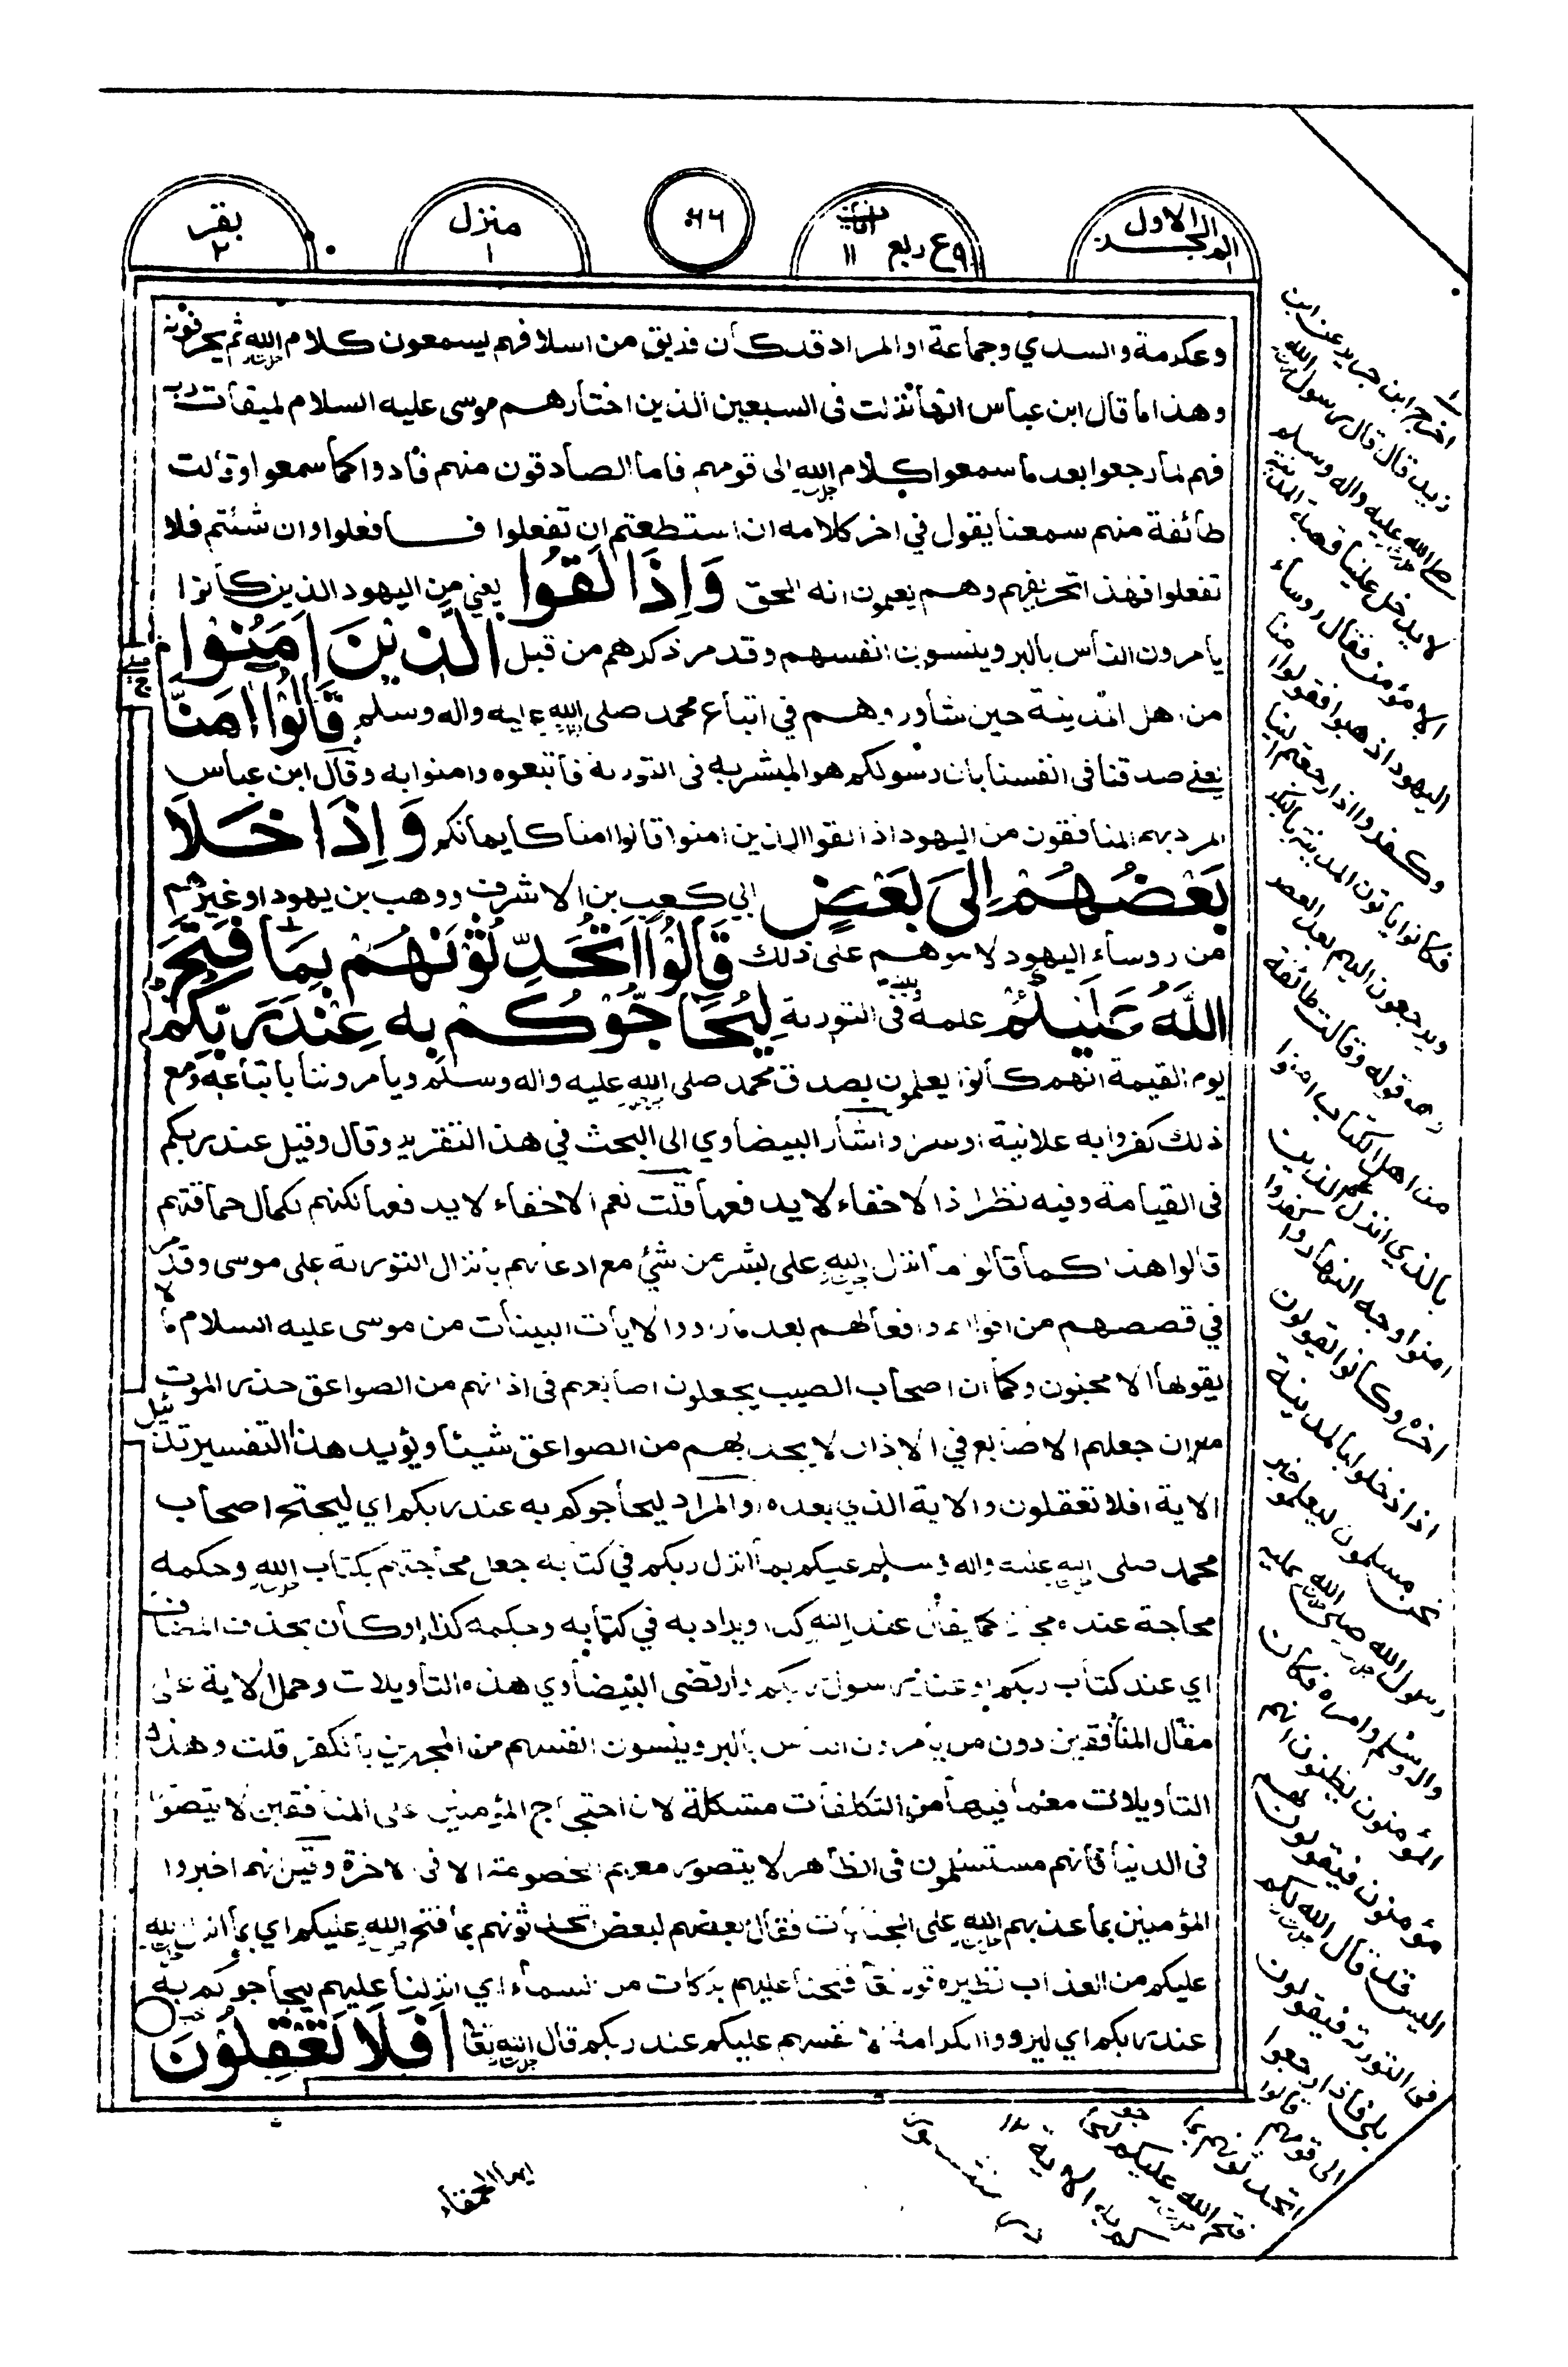 الجلد الاول
٩ ع ربع ١١
٦٦
منزل ١
بقر ٢
وعكرمة والسدي وجماعة او المراد قد كان فريق من اسلافهم يسمعون كلام الله ثم يحرفونه
وهذا ما قال ابن عباس انها نزلت فى السبعين الذين اختارهم موسى عليه السلام لميقات ربه
فهم لما رجعوا بعد ما سمعوا كلام الله الى قومهم فاما الصادقون منهم فادوا كما سمعوا وقالت
طائفة منهم سمعنا يقول في اخر كلامه ان استطعتم ان تفعلوا فافعلوا وان شئتم فلا
تفعلوا فهذا تحريفهم وهم يعلمون انه الحق وَاِذَا لَقُوا يعني من اليهود الذين كانوا
يامرون الناس بالبر وينسون انفسهم وقد مر ذكرهم من قبل الَّذِيْنَ اٰمَنُوْا
من اهل المدينة حين شاوروهم في اتباع محمد صلى الله عليه واله وسلم قَالُوْٓا اٰمَنَّا
يعني صدقنا فى انفسنا بان رسولكم هو المبشر به فى التورىة فاتبعوه وامنوا به وقال ابن عباس
المراد بهم المنافقون من اليهود اذا لقوا الذين امنوا قالوا امنا كايمانكم وَاِذَا خَلَا
بَعْضُهُمْ اِلٰى بَعْضٍ الي كعب بن الاشرف ووهب بن يهودا وغيرهم
من روساء اليهود لاموهم على ذلك قَالُوْٓا اَتُحَدِّثُوْنَهُمْ بِمَا فَتَحَ
اللّٰهُ عَلَيْكُمْ علمه وبينه فى التورىة لِيُحَآجُّوْكُمْ بِه عِنْدَ رَبِّكُمْ
يوم القيمة انهم كانوا يعلمون بصدق محمد صلى الله عليه واله وسلم ويامروننا باتباعه ومع
ذلك كفروا به علانية او سرا واشار البيضاوي الى البحث في هذا التقرير وقال وقيل عند ربكم
فى القيامة وفيه نظر اذ الاخفاء لا يدفعها قلت نعم الاخفاء لا يدفعها لكنهم لكمال حماقتهم
قالوا هذا كما قالوا ما انزل الله على بشر من شئ مع ادعائهم بانزال التورىة على موسى وقد مر
في قصصهم من اقوالهم وافعالهم بعد ما راووا الايات البينات من موسى عليه السلام ما لا
يقولها الا مجنون وكما ان اصحاب الصيب يجعلون اصابعهم فى اذانهم من الصواعق حذر الموت
مع ان جعلهم الاصابع في الاذان لا يجديهم من الصواعق شيئا ويؤيد هذا التفسير تذئيل
الاية افلا تعقلون والاية الذي بعده والمراد ليحاجوكم به عند ربكم اي ليحتج اصحاب
محمد صلى الله عليه واله وسلم عليكم بما انزل ربكم في كتابه جعل محاجتهم بكتاب الله وحكمه
محاجة عنده مجازا كما يقال عند الله كذا ويراد به في كتابه وحكمه كذا او كان بحذف المضاف
اي عند كتاب ربكم او عند رسول ربكم وارتضى البيضاوي هذه التاويلات وحمل الاية على
مقال المنافقين دون من يامرون الناس بالبر وينسون انفسهم من المجهرين بالكفر قلت وهذه
التاويلات مع ما فيها من التكلفات مشكلة لان احتجاج المؤمنين على المنافقين لا يتصور
فى الدنيا فانهم مستسلمون فى الظاهر لا يتصور معهم الخصومة الا فى الاخرة وقيل انهم اخبروا
المؤمنين بما عذبهم الله على الجنايات فقال بعضهم لبعض اتحدثونهم بما فتح الله عليكم اي بما انزل الله
عليكم من العذاب نظيره قوله تعا فتحنا عليهم بركات من السماء اي انزلنا عليهم ليحاجوكم به
عند ربكم اي ليروا الكرامة لانفسهم عليكم عند ربكم قال الله تعا اَفَلَا تَعْقِلُوْنَ
اخرج ابن جرير عن ابن
زيد قال قال رسول الله
صلى الله عليه واله وسلم
لا يدخل علينا قصبة المدينة
الا مؤمن فقال روساء
اليهود اذهبوا فقولوا امنا
وكفروا اذا رجعتم الينا
فكانوا ياتون المدينة بالبكر
ويرجعون اليهم بعد العصر
وهو قوله وقالت طائفة
من اهل الكتاب امنوا
بالذي انزل على الذين
امنوا وجه النهار واكفروا
اخره وكانوا يقولون
اذا دخلوا المدينة
نحن مسلمون ليعلموا خبر
رسول الله صلى الله عليه
واله وسلم وامره فكان
المؤمنون يظنون انهم
مؤمنون فيقولون لهم
اليس قد قال الله لكم
فى التورىة فيقولون
بلى فاذا رجعوا
الى قومهم قالوا
اتحدثونهم بما
فتح الله عليكم
الاية
ايها الحمقاء